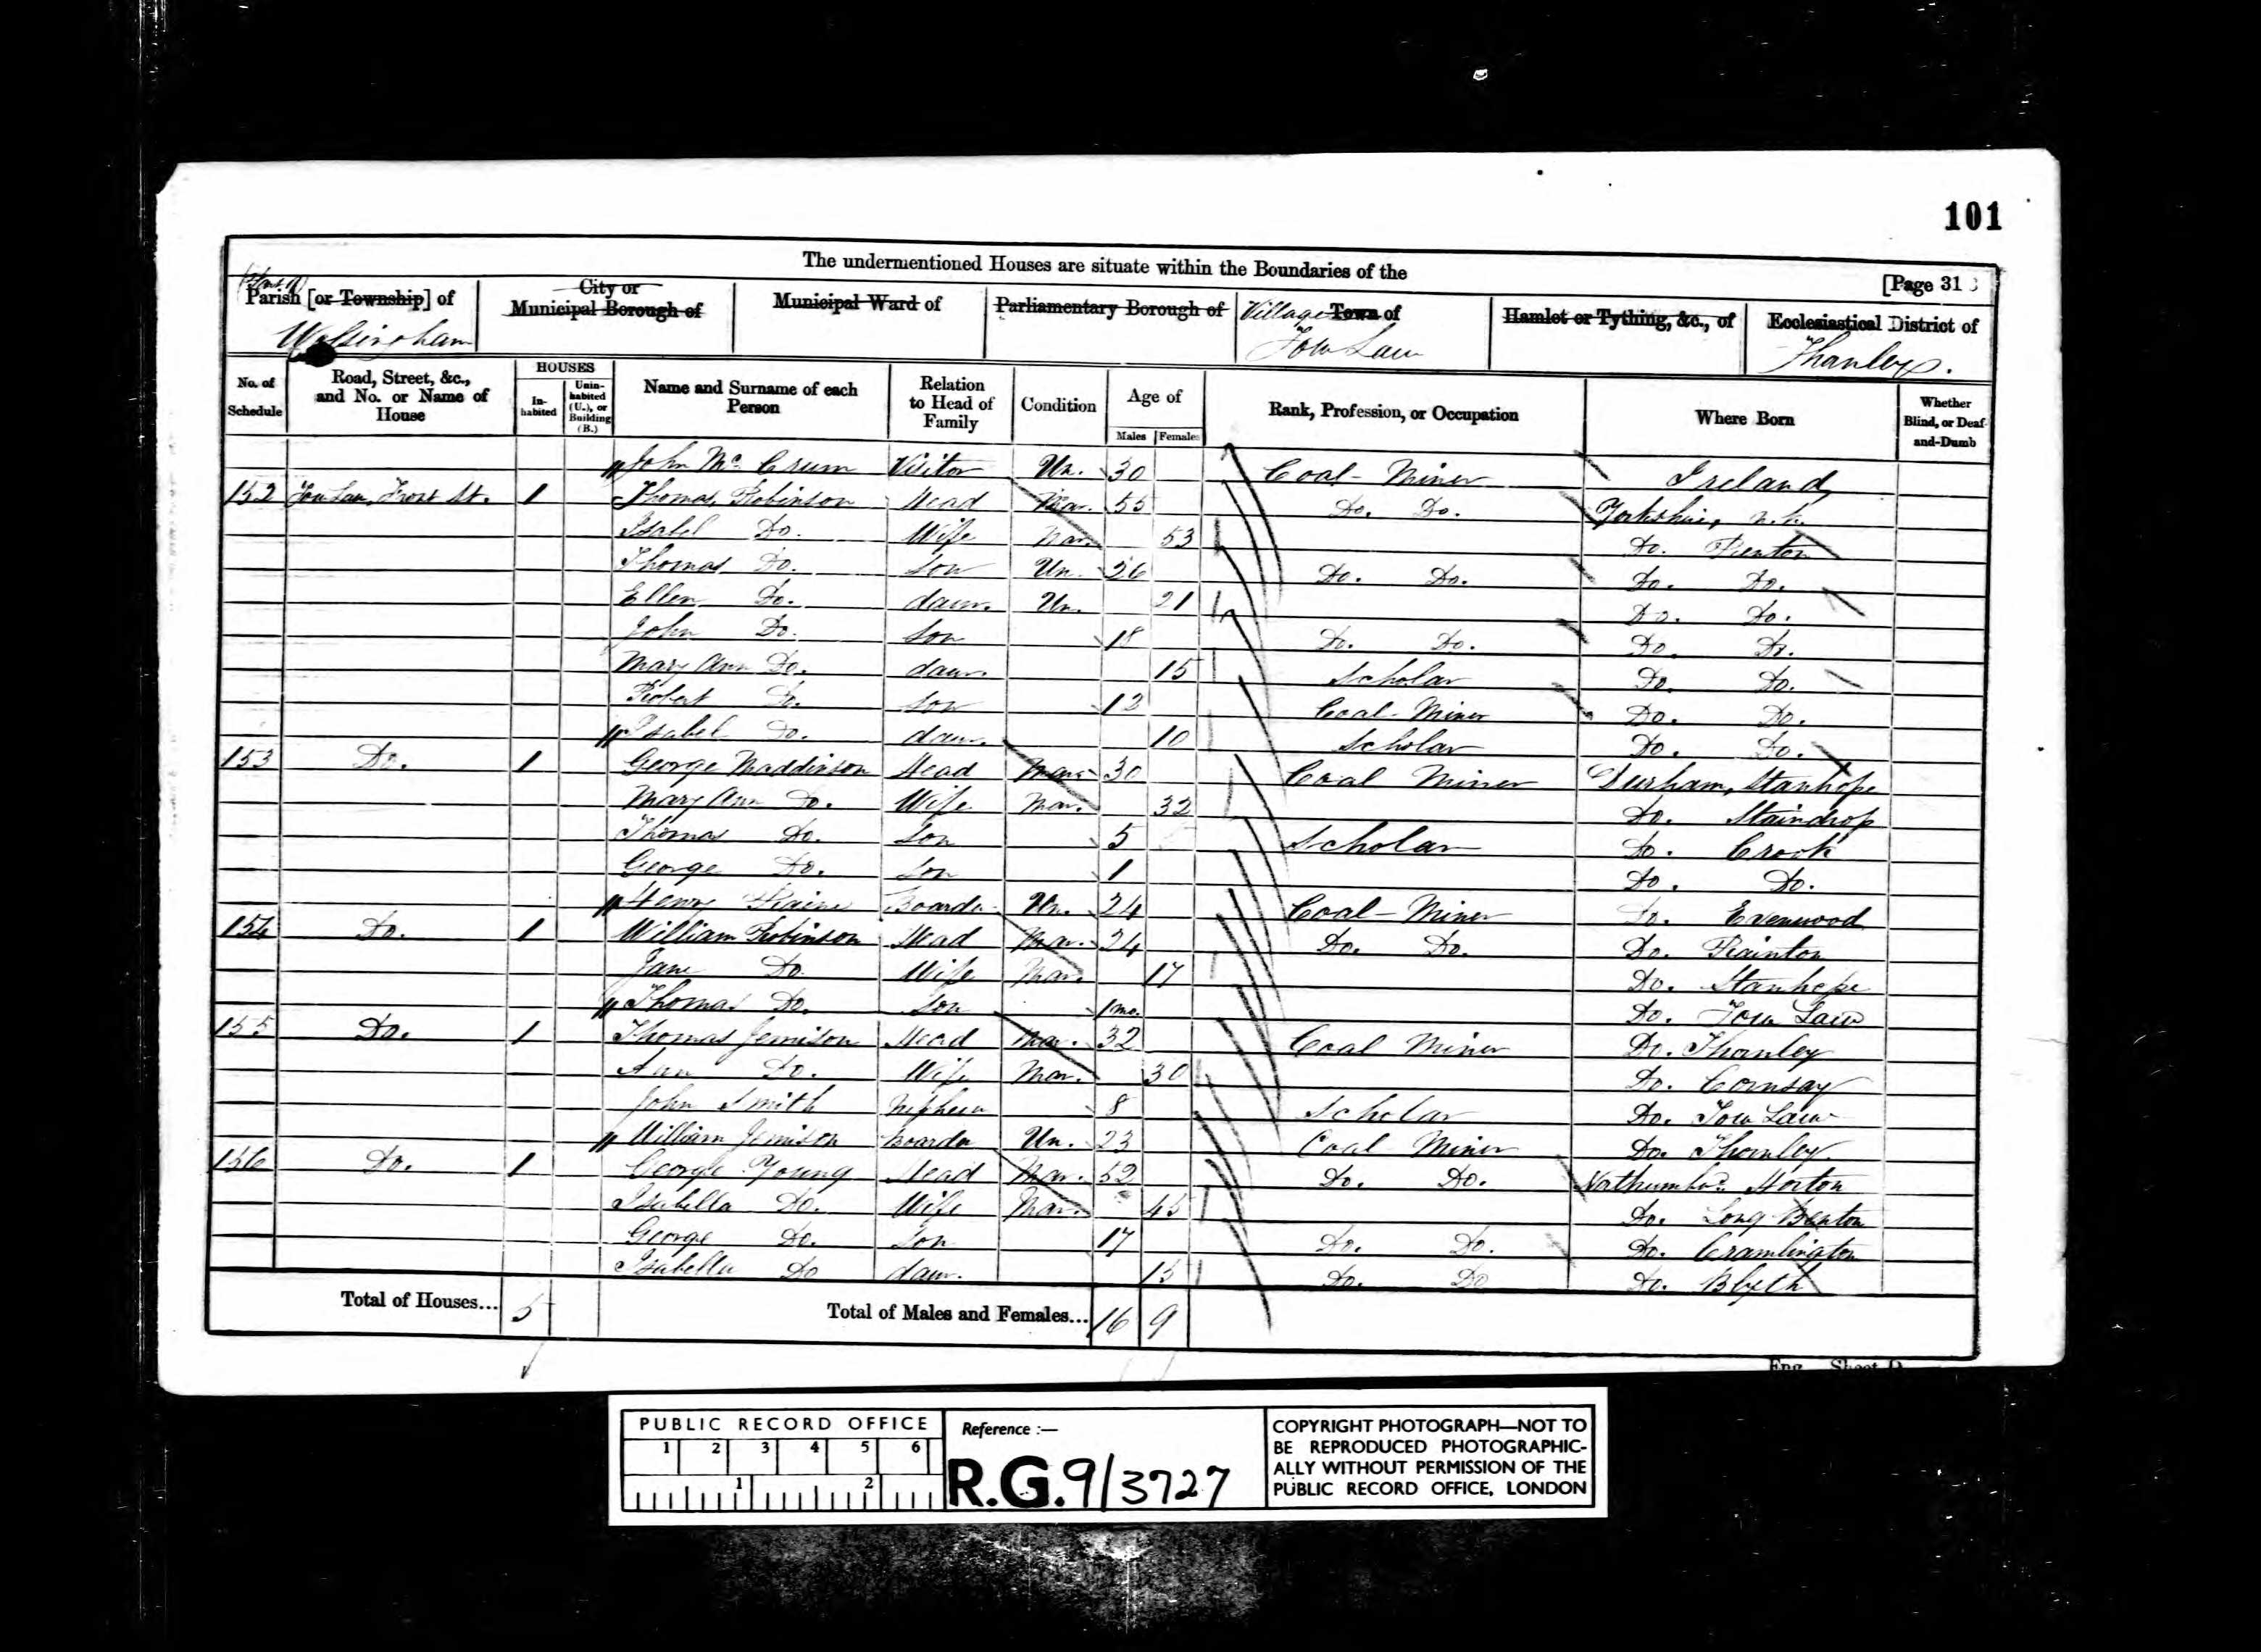 101
The undermentioned Houses are situate within the Boundaries of the
[Page 31
Parish [or Township] of
City or Municipal Borough of
Municipal Ward of
Parliamentary Borough of
Village Town of
Hamlet or Tything, &c., of
Ecclesiastical District of
Wolsingham
Tow Law
Thanley.
No. of Schedule
Road, Street, &c., and No. or Name of House
HOUSES
In-habited
Unin-habited (U.), or Building (B.)
Name and Surname of each Person
Relation to Head of Family
Condition
Age of
Males
Females
Rank, Profession, or Occupation
Where Born
Whether Blind, or Deaf-and-Dumb
John Mc. Crum Visitor Un. 30 Coal-Miner Ireland
152 Tow Law, Front St. 1 Thomas Robinson Head Mar. 55 Do. Do. Yorkshire, n.k.
Isabel Do. Wife Mar. 53 Do.
Thomas Do. Son Un. 26 Do. Do. Do. Do.
Ellen Do. daur. Un. 21 Do. Do.
John Do. Son 18 Do. Do. Do. Do.
Mary Ann Do. daur. 15 Scholar Do. Do.
Robert Do. Son 12 Coal-Miner Do. Do.
Isabel Do. daur. 10 Scholar Do. Do.
153 Do. 1 George Maddison Head Mar. 30 Coal Miner Durham, Stanhope
Mary Ann Do. Wife Mar. 32 Do. Staindrop
Thomas Do. Son 5 Scholar Do. Crook
George Do. Son 1 Do. Do.
Henry Raine Boarder Un. 24 Coal-Miner Do. Evenwood
154 Do. 1 William Robinson Head Mar. 24 Do. Do. Do. Rainton
Jane Do. Wife Mar. 17 Do. Stanhope
Thomas Do. Son 1 mo. Do. Tow Law
155 Do. 1 Thomas Jemison Head Mar. 32 Coal Miner Do. Thornley
Ann Do. Wife Mar. 30 Do. Cornsay
John Smith Nephew 8 Scholar Do. Tow Law
William Jemison Boarder Un. 23 Coal Miner Do. Thornley.
156 Do. 1 George Young Head Mar. 52 Do. Do. Northumbd. Horton
Isabella Do. Wife Mar. 45 Do. Long Benton
George Do. Son 17 Do. Do. Do. Cramlington
Isabella Do daur. 15 Do. Do Do. Blyth
Total of Houses... 5 Total of Males and Females... 16 9
Eng.—Sheet D.
PUBLIC RECORD OFFICE
1 2 3 4 5 6
1 2
Reference :—
R.G. 9/3727
COPYRIGHT PHOTOGRAPH—NOT TO
BE REPRODUCED PHOTOGRAPHIC-
ALLY WITHOUT PERMISSION OF THE
PUBLIC RECORD OFFICE, LONDON